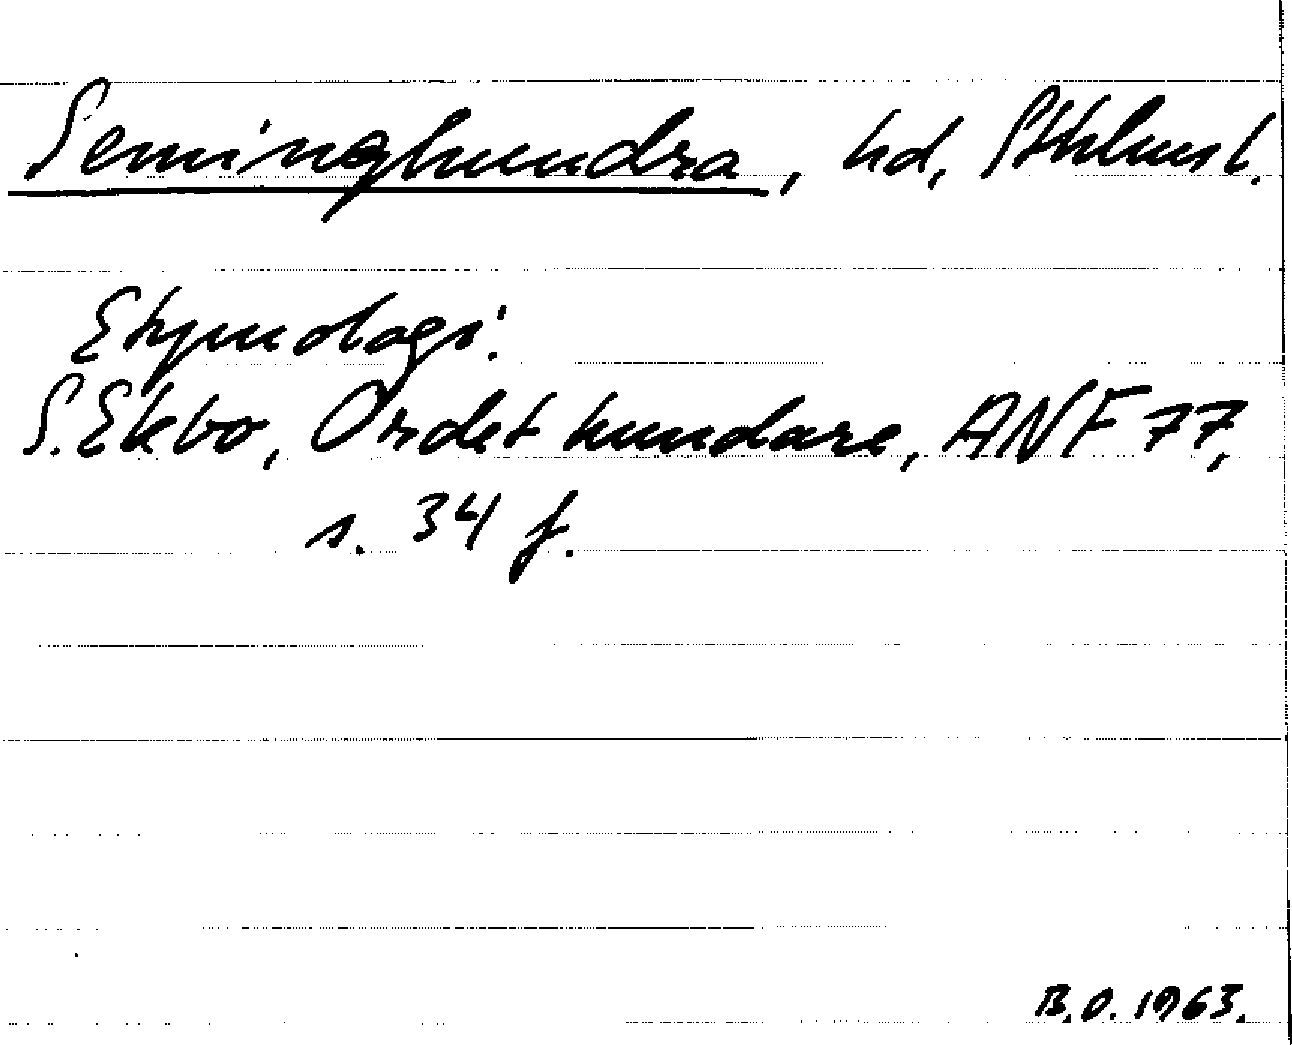 Seminghundra, hd, Sthlms l.
Etymologi:
S. Ekbo, Ordet hundare, ANF 77,
s. 34 f.
B.O. 1963.